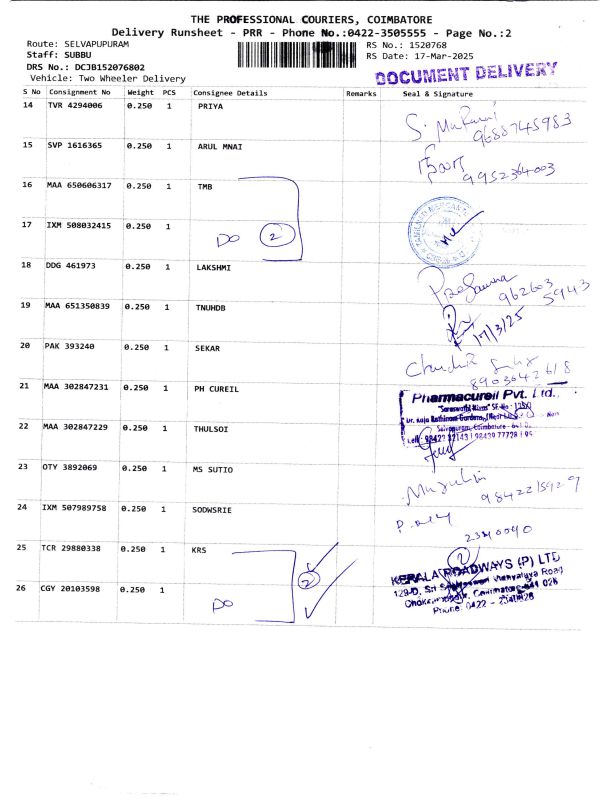 THE PROFESSIONAL COURIERS, COIMBATORE
Delivery Runsheet - PRR - Phone No.:0422-3505555 - Page No.:2
Route: SELVAPUPURAM
RS No.: 1520768
Staff: SUBBU
RS Date: 17-Mar-2025
DRS No.: DCJB152076802
Vehicle: Two Wheeler Delivery
DOCUMENT DELIVERY
S No Consignment No Weight PCS Consignee Details Remarks Seal & Signature
14 TVR 4294006 0.250 1 PRIYA
9688745983
15 SVP 1616365 0.250 1 ARUL MNAI
9952364003
16 MAA 650606317 0.250 1 TMB
17 IXM 508032415 0.250 1 DO 2
18 DDG 461973 0.250 1 LAKSHMI
962603
5943
19 MAA 651350839 0.250 1 TNUHDB
17/3/25
20 PAK 393240 0.250 1 SEKAR
8903642618
21 MAA 302847231 0.250 1 PH CUREIL
Pharmacureil Pvt. Ltd.,
22 MAA 302847229 0.250 1 THULSOI
23 OTY 3892069 0.250 1 MS SUTIO
9842215929
24 IXM 507989758 0.250 1 SODWSRIE
25 TCR 29880338 0.250 1 KRS
2
2
KERALA ROADWAYS (P) LTD
26 CGY 20103598 0.250 1
DO